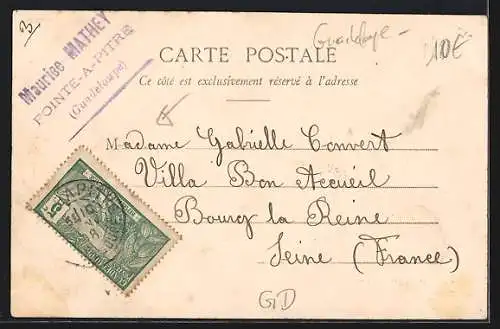 Guadeloupe
10€
Maurice MATHEY
POINTE-A-PITRE
(Guadeloupe)
CARTE POSTALE
Ce côté est exclusivement réservé à l'adresse
Madame Gabrielle Convert
Villa Bon Accueil
Bourg la Reine
Seine (France)
GD